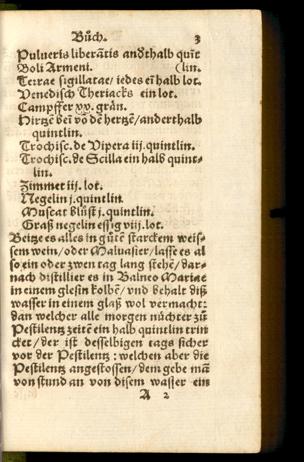 Bůch. 3
Pulueris liberãtis anðthalb quĩt
Boli Armeni. (lin.
Terrae sigillatae/ iedes eĩ halb lot.
Venedisch Theriacks ein lot.
Campffer xv. grän.
Hirtzẽ beĩ võ dẽ hertzẽ/anderthalb
quintlin.
Trochisc. de Vipera iij. quintlin.
Trochisc. de Scilla ein halb quint-
lin.
Zimmet iij. lot.
Negelin j. quintlin
Muscat blůst j. quintlin.
Graß negelin essig viij. lot.
Beitze es alles in gůtẽ starckem weis-
sem wein/oder Maluasier/ lasse es al
so ein oder zwen tag lang stehẽ/ dar-
nach distillier es in Balneo Mariae
in einem glesin kolbẽ/ vnd behalt diß
wasser in einem glaß wol vermacht:
dan welcher alle morgen nüchter zů
Pestilentz zeitẽ ein halb quintlin trin
cket/ der ist desselbigen tags sicher
vor der Pestilentz : welchen aber die
Pestilentz angestossen/ dem gebe mã
von stund an von disem wasser ein
A 2